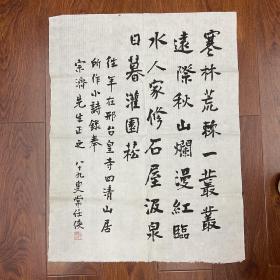 寒林荒棘一叢叢
遠際秋山爛漫紅臨
水人家修石屋汲泉
日暮灌園菘
往年在邢台皇寺四清山居
所作小詩録奉
宗濟先生正之 八十九叟常任俠